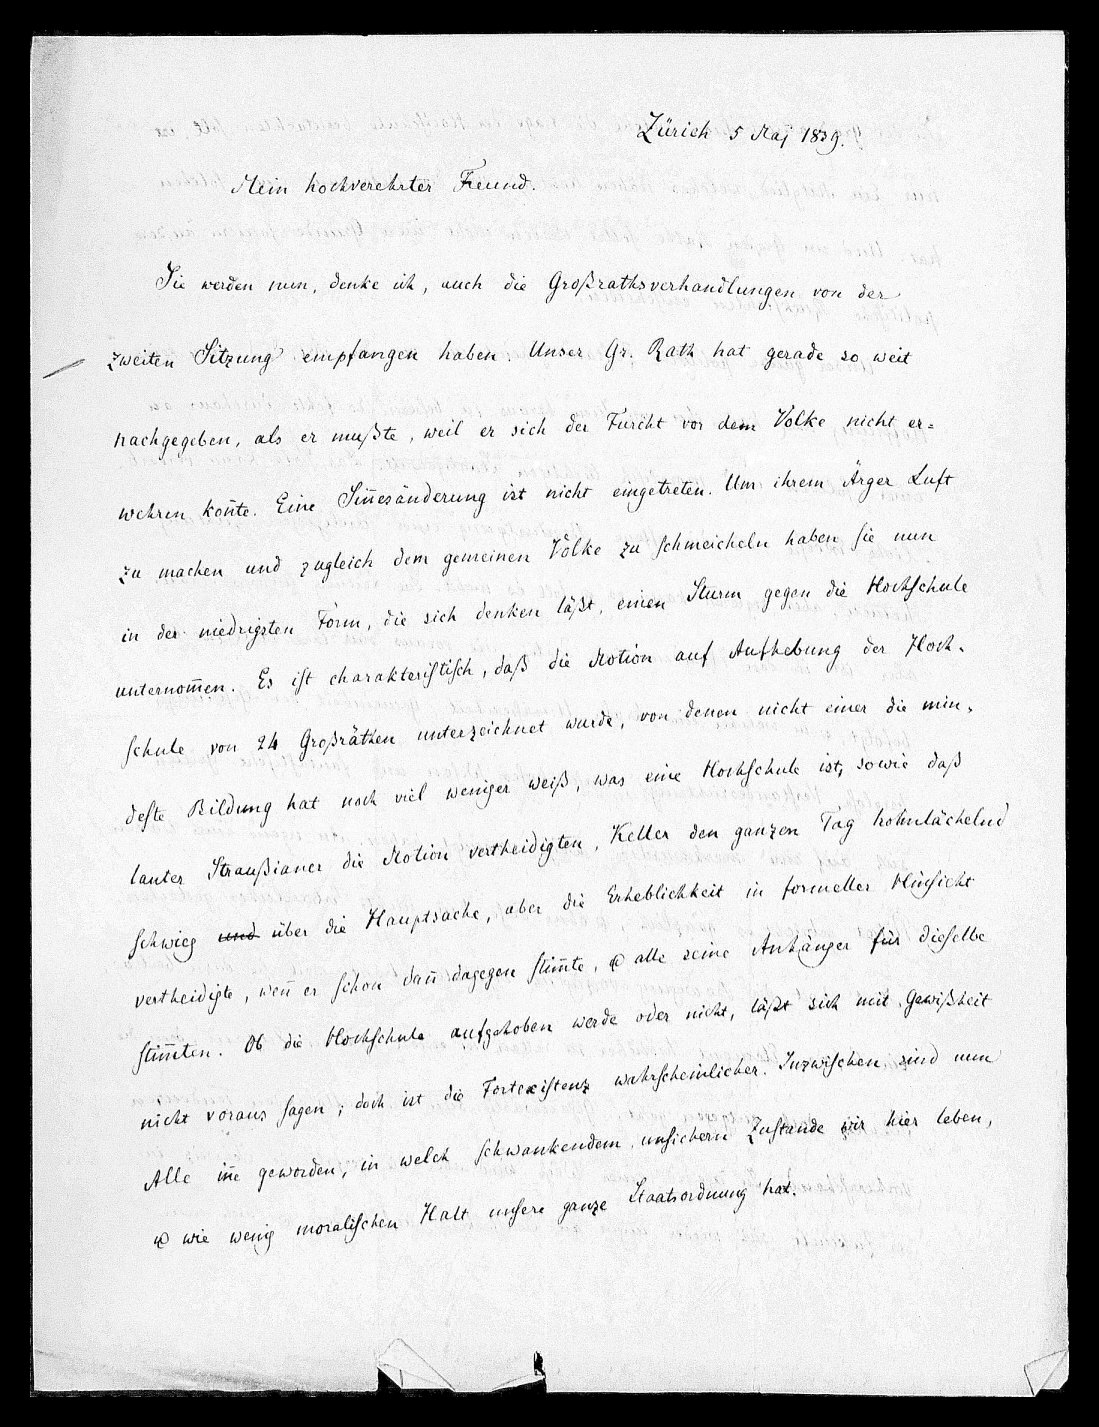 Zürich 5 Maj 1839.
Mein hochverehrter Freund.
Sie werden nun, denke ich, auch die Großrathsverhandlungen von der
zweiten Sitzung empfangen haben. Unser Gr. Rath hat gerade so weit
nachgegeben, als er mußte, weil er sich der Furcht vor dem Volke nicht er=
wehren kon̄te. Eine Sin̄esänderung ist nicht eingetreten. Um ihrem Ärger Luft
zu machen und zugleich dem gemeinen Volke zu schmeicheln haben sie nun
in der niedrigsten Form, die sich denken läßt, einen Sturm gegen die Hochschule
unternom̄en. Es ist charakteristisch, daß die Motion auf Aufhebung der Hoch-
schule von 24 Großräthen unterzeichnet wurde, von denen nicht einer die min-
deste Bildung hat noch viel weniger weiß, was eine Hochschule ist, sowie daß
lauter Straußianer die Motion vertheidigten, Keller den ganzen Tag hohnlächelnd
schwieg und über die Hauptsache, aber die Erheblichkeit in formeller Hinsicht
vertheidigte, wen̄ er schon dan̄ dagegen stim̄te, & alle seine Anhänger für dieselbe
stim̄ten. Ob die Hochschule aufgehoben werde oder nicht, läßt sich mit Gewißheit
nicht voraus sagen; doch ist die Fortexistenz wahrscheinlicher. Inzwischen sind nun
Alle in̄e geworden, in welch schwankendem, unsichern Zustande wir hier leben,
& wie wenig moralischen Halt unsere ganze Staatsordnung hat.